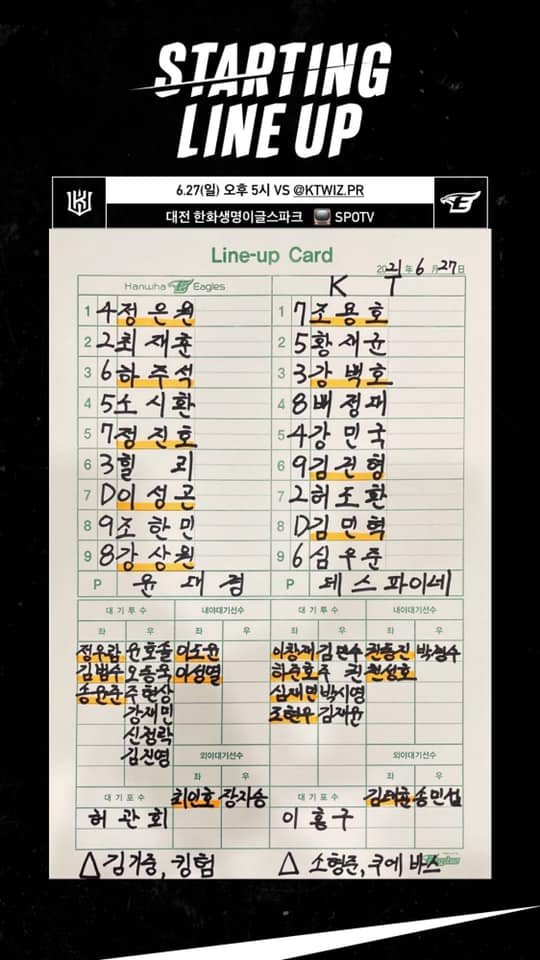 STARTING
LINE UP
6.27(일) 오후 5시 VS @KTWIZ.PR
대전 한화생명이글스파크 SPOTV
Line-up Card
2021년 6월 27일
Hanwha Eagles
KT
1 4 정은원
2 2 최재훈
3 6 하주석
4 5 노시환
5 7 정진호
6 3 힐리
7 D 이성곤
8 9 조한민
9 8 강상원
P 윤대경
1 7 조용호
2 5 황재균
3 3 강백호
4 8 배정대
5 4 강민국
6 9 김건형
7 2 허도환
8 D 김민혁
9 6 심우준
P 데스파이네
대기투수 내야대기선수
좌 우 좌 우
정우람 윤호솔 이도윤
김범수 오동욱 이성열
송윤준 주현상
강재민
신정락
김진영
외야대기선수
좌 우
대기포수 최인호 장지승
허관회
△ 김기중, 킹험
대기투수 내야대기선수
좌 우 좌 우
이창재 김민수 권동진 박경수
하준호 주권 천성호
심재민 박시영
조현우 김재윤
외야대기선수
좌 우
대기포수 김태훈 송민섭
이홍구
△ 소형준, 쿠에바스
Eagles